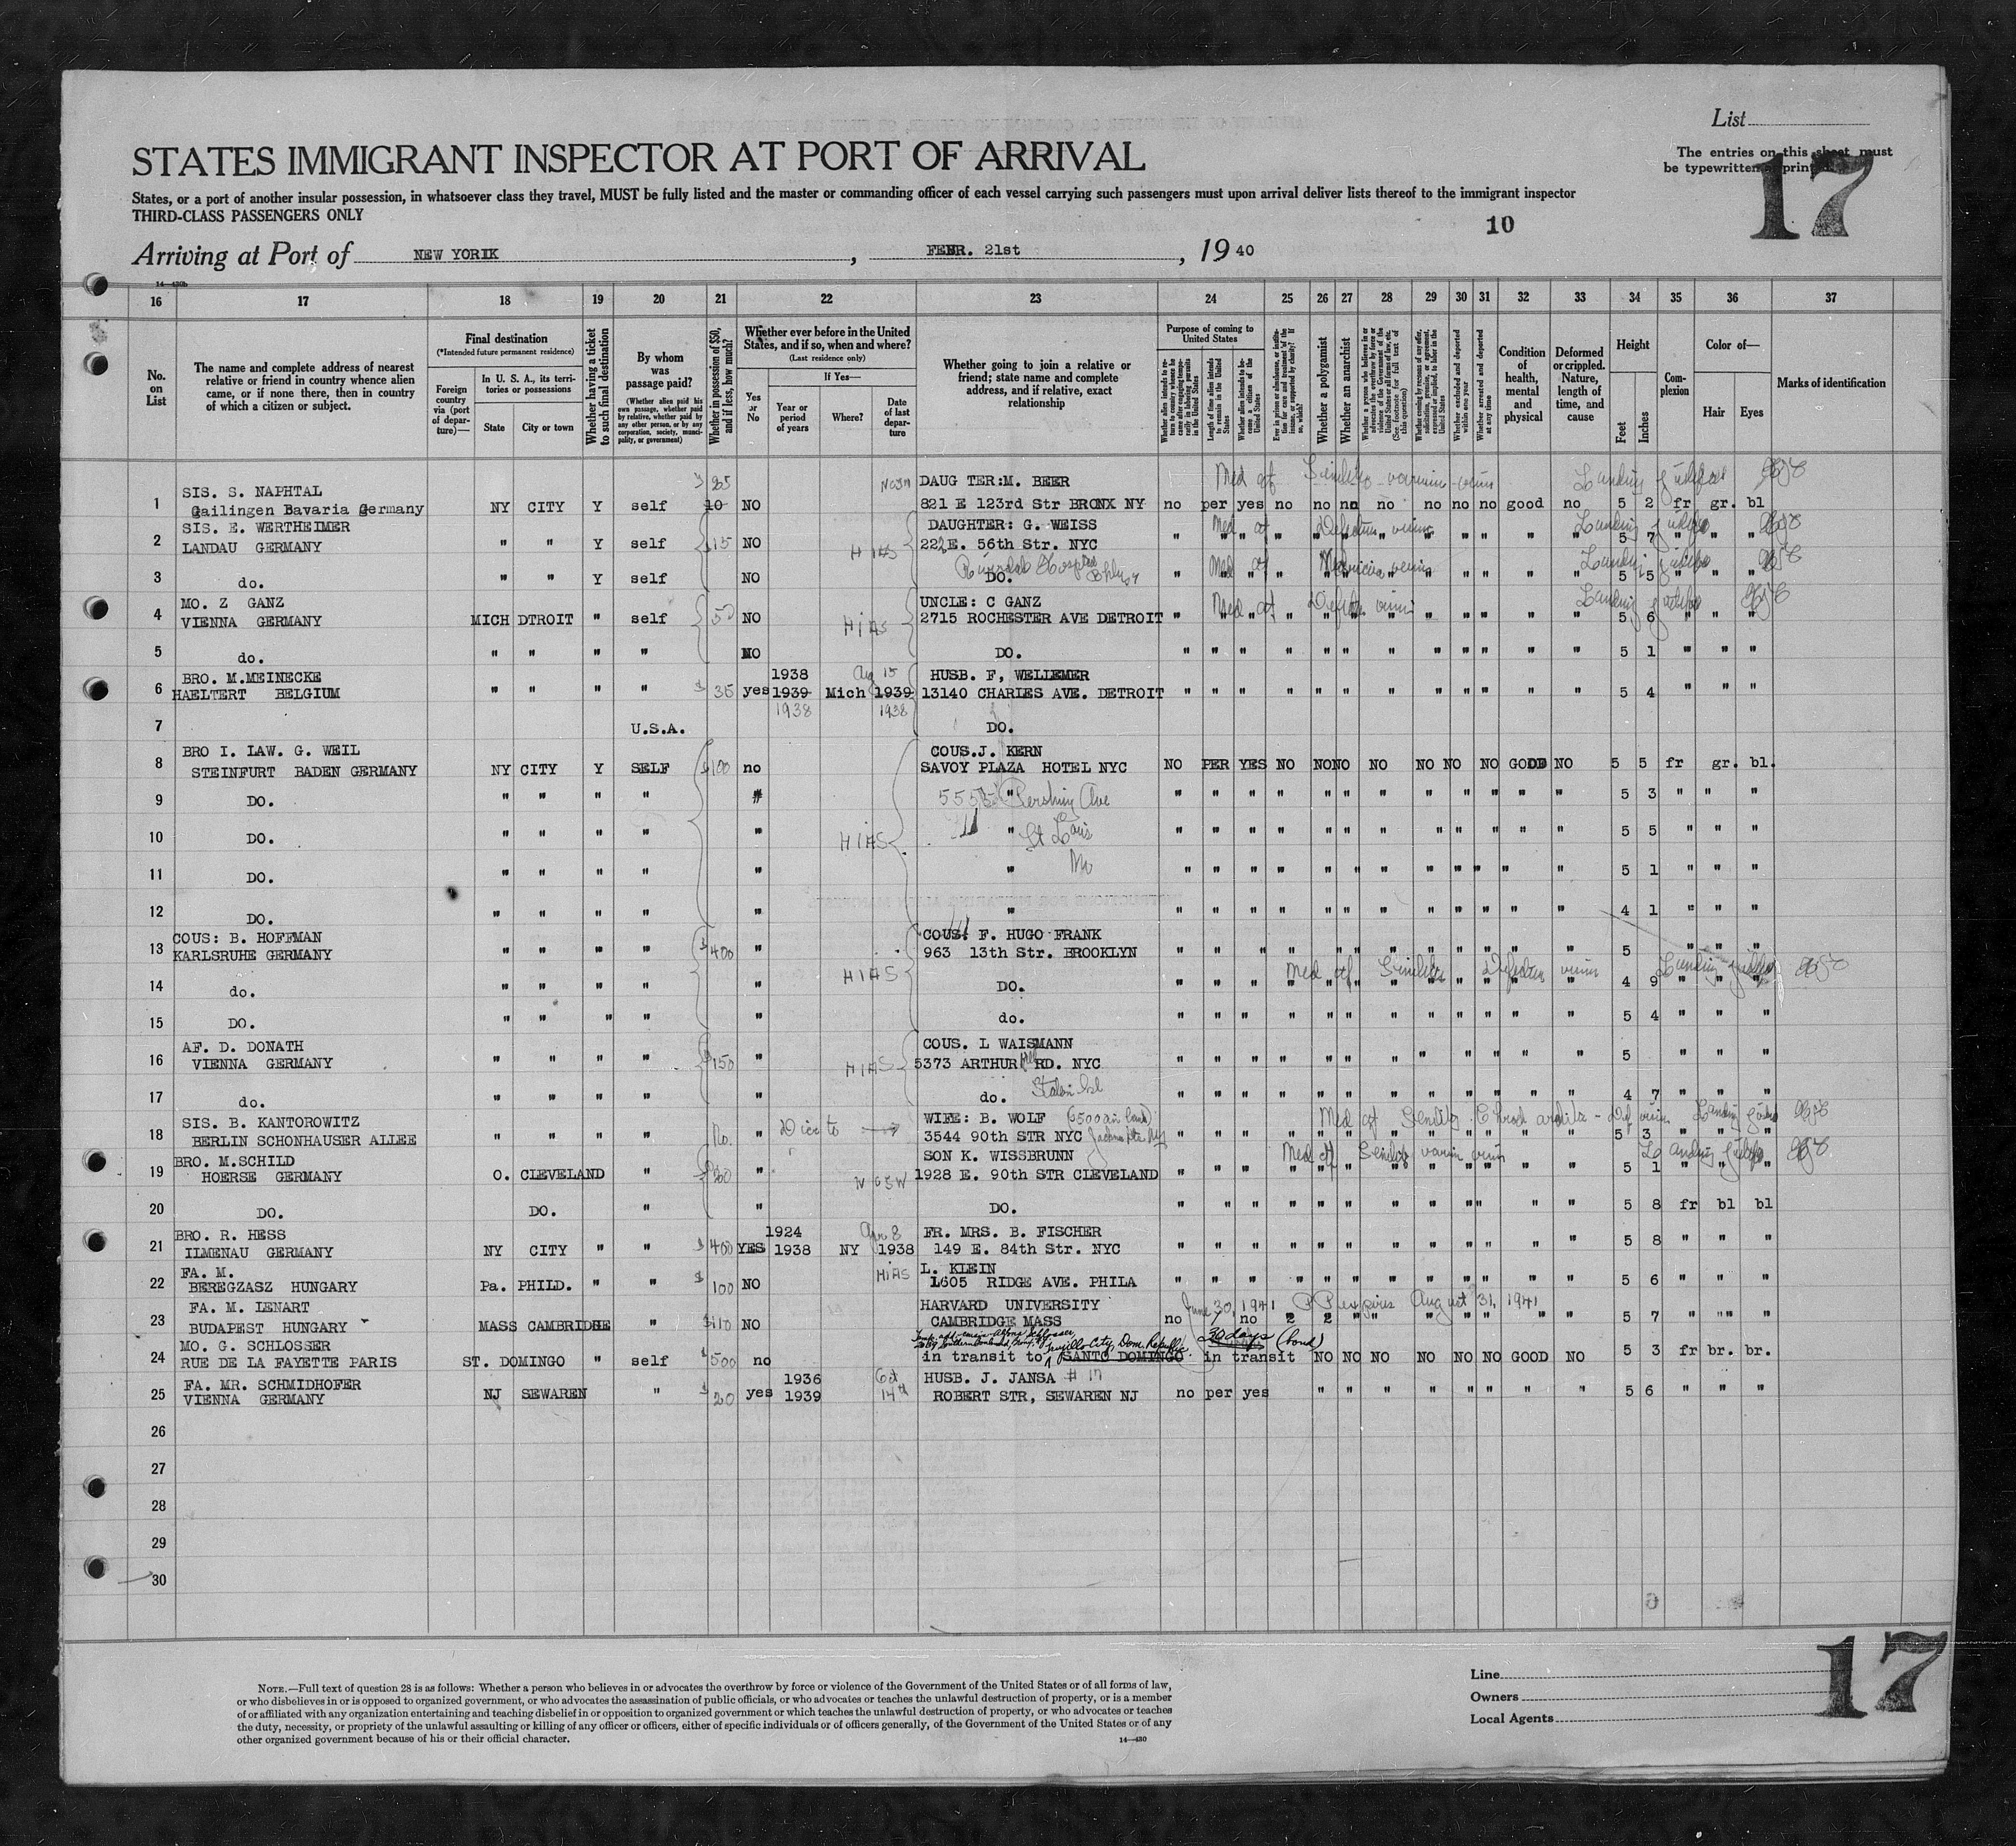 List
The entries on this sheet must
be typewritten or printed.
17
STATES IMMIGRANT INSPECTOR AT PORT OF ARRIVAL
States, or a port of another insular possession, in whatsoever class they travel, MUST be fully listed and the master or commanding officer of each vessel carrying such passengers must upon arrival deliver lists thereof to the immigrant inspector
THIRD-CLASS PASSENGERS ONLY
10
Arriving at Port of NEW YORIK, FEBR. 21st, 1940
14—430b
16 17 18 19 20 21 22 23 24 25 26 27 28 29 30 31 32 33 34 35 36 37
No. on List
The name and complete address of nearest relative or friend in country whence alien came, or if none there, then in country of which a citizen or subject.
Final destination
(*Intended future permanent residence)
Foreign country via (port of departure)—
In U. S. A., its territories or possessions
State
City or town
Whether having a ticket to such final destination
By whom was passage paid?
(Whether alien paid his own passage, whether paid by relative, whether paid by any other person, or by any corporation, society, municipality, or government)
Whether in possession of $50, and if less, how much?
Whether ever before in the United States, and if so, when and where?
(Last residence only)
Yes or No
If Yes—
Year or period of years
Where?
Date of last departure
Whether going to join a relative or friend; state name and complete address, and if relative, exact relationship
Purpose of coming to United States
Whether alien intends to return to country whence he came after engaging temporarily in laboring pursuits in the United States
Length of time alien intends to remain in the United States
Whether alien intends to become a citizen of the United States
Ever in prison or almshouse or institution for care and treatment of the insane, or supported by charity? If so, which?
Whether a polygamist
Whether an anarchist
Whether a person who believes in or advocates the overthrow by force or violence of the Government of the United States or all forms of law, etc. (See footnote for full text of this question)
Whether coming by reason of any offer, solicitation, promise, or agreement, expressed or implied, to labor in the United States
Whether excluded and deported within one year
Whether arrested and deported at any time
Condition of health, mental and physical
Deformed or crippled. Nature, length of time, and cause
Height
Feet
Inches
Complexion
Color of—
Hair
Eyes
Marks of identification
SIS. S. NAPHTAL $ 25 DAUG TER:M. BEER
1 Gailingen Bavaria Germany NY CITY Y self 10 NO 821 E 123rd Str BRONX NY no per yes no no no no no no no good no 5 2 fr gr. bl
SIS. E. WERTHEIMER DAUGHTER: G. WEISS
2 LANDAU GERMANY " " Y self 15 NO HIAS 222E. 56th Str. NYC " " " " " " " " " " " " 5 7 " " "
3 do. " " Y self NO DO. " " " " " " " " " " " " 5 5 " " "
MO. Z GANZ UNCLE: C GANZ
4 VIENNA GERMANY MICH DTROIT " self 50 NO HIAS 2715 ROCHESTER AVE DETROIT " " " " " " " " " " " " 5 6 " " "
5 do. " " " " NO DO. " " " " " " " " " " " " 5 1 " " "
BRO. M.MEINECKE 1938 Aug 15 HUSB. F, WELLEMER
6 HAELTERT BELGIUM " " " " $ 35 yes 1939 Mich 1939 13140 CHARLES AVE. DETROIT " " " " " " " " " " " " 5 4 " " "
1938 1938
7 U.S.A. DO.
BRO I. LAW. G. WEIL COUS.J. KERN
8 STEINFURT BADEN GERMANY NY CITY Y SELF $100 no SAVOY PLAZA HOTEL NYC NO PER YES NO NO NO NO NO NO NO GOOD NO 5 5 fr gr. bl.
9 DO. " " " " " 5555 Pershing Ave " " " " " " " " " " " " 5 3 " " "
10 DO. " " " " " HIAS " St Louis " " " " " " " " " " " " 5 5 " " "
11 DO. " " " " " " Mo " " " " " " " " " " " " 5 1 " " "
12 DO. " " " " " " " " " " " " " " " " " " 4 1 " " "
COUS: B. HOFFMAN COUS: F. HUGO FRANK
13 KARLSRUHE GERMANY " " " " $400 " 963 13th Str. BROOKLYN " " " " " " " " " " " " 5 " " "
14 do. " " " " " HIAS DO. " " " " " " " " " " " " 4 9 " " "
15 DO. " " " " " do. " " " " " " " " " " " " 5 4 " " "
AF. D. DONATH COUS. L WAISMANN
16 VIENNA GERMANY " " " " $150 " HIAS 5373 ARTHUR RD. NYC " " " " " " " " " " " " 5 " " "
17 do. " " " " " do. Staten Isl " " " " " " " " " " " " 4 7 " " "
SIS. B. KANTOROWITZ WIFE: B. WOLF
18 BERLIN SCHONHAUSER ALLEE " " " " No. " 3544 90th STR NYC " " " " " " " " " " " " 5 3 " " "
BRO. M.SCHILD SON K. WISSBRUNN
19 HOERSE GERMANY O. CLEVELAND " " 1928 E. 90th STR CLEVELAND " " " " " " " " " " " " 5 1 " " "
20 DO. DO. " " DO. " " " " " " " " " " " " 5 8 fr bl bl
BRO. R. HESS 1924 Apr 8 FR. MRS. B. FISCHER
21 ILMENAU GERMANY NY CITY " " $400 YES 1938 NY 1938 149 E. 84th Str. NYC " " " " " " " " " " " " 5 8 " " "
FA. M. HIAS L. KLEIN
22 BEREGZASZ HUNGARY Pa. PHILD. " " $ 100 NO 1605 RIDGE AVE. PHILA " " " " " " " " " " " " 5 6 " " "
FA. M. LENART HARVARD UNIVERSITY June 30, 1941 PP expires August 31, 1941
23 BUDAPEST HUNGARY MASS CAMBRIDGE " $110 NO CAMBRIDGE MASS no no 5 7 " " "
MO. G. SCHLOSSER Trujillo City, Dom. Republic 30 days (bond)
24 RUE DE LA FAYETTE PARIS ST. DOMINGO " self $500 no in transit to SANTO DOMINGO in transit NO NO NO NO NO NO GOOD NO 5 3 fr br. br.
FA. MR. SCHMIDHOFER 1936 HUSB. J. JANSA # 17
25 VIENNA GERMANY NJ SEWAREN " $ 20 yes 1939 14th ROBERT STR, SEWAREN NJ no per yes " " " " " " " " 5 6 " " "
26
27
28
29
30
NOTE.—Full text of question 28 is as follows: Whether a person who believes in or advocates the overthrow by force or violence of the Government of the United States or of all forms of law,
or who disbelieves in or is opposed to organized government, or who advocates the assassination of public officials, or who advocates or teaches the unlawful destruction of property, or is a member
of or affiliated with any organization entertaining and teaching disbelief in or opposition to organized government or which teaches the unlawful destruction of property, or who advocates or teaches
the duty, necessity, or propriety of the unlawful assaulting or killing of any officer or officers, either of specific individuals or of officers generally, of the Government of the United States or of any
other organized government because of his or their official character.
14—430
Line
Owners
Local Agents
17